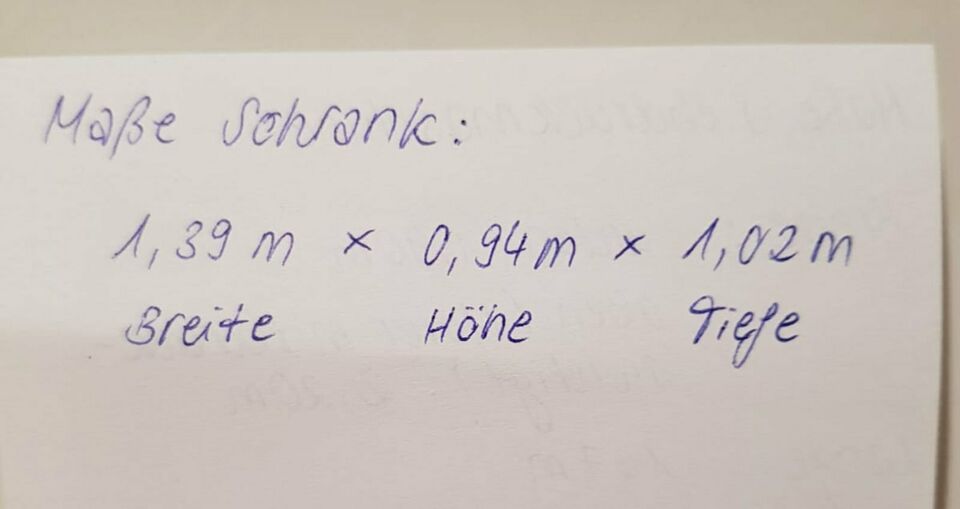 Maße Schrank:
1,39 m × 0,94 m × 1,02 m
Breite Höhe Tiefe